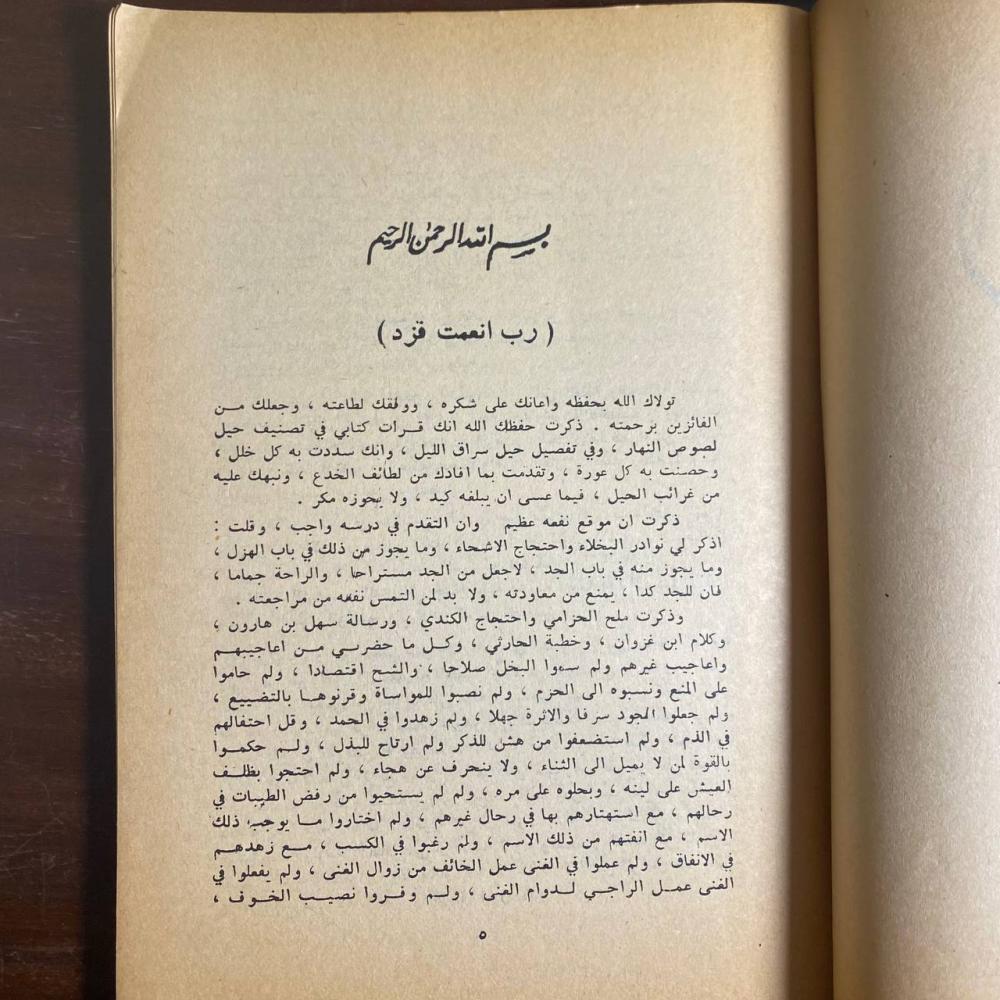 بسم الله الرحمن الرحيم
( رب انعمت فزد )
تولاك الله بحفظه واعانك على شكره ، ووفقك لطاعته ، وجعلك مــن
الفائزين برحمته . ذكرت حفظك الله انك قــرات كتابي في تصنيف حيل
لصوص النهار ، وفي تفصيل حيل سراق الليل ، وانك سددت به كل خلل ،
وحصنت به كل عورة ، وتقدمت بما افادك من لطائف الخدع ، ونبهك عليه
من غرائب الحيل ، فيما عسى ان يبلغه كيد ، ولا يحوزه مكر .
ذكرت ان موقع نفعه عظيم وان التقدم في درسه واجب ، وقلت :
اذكر لي نوادر البخلاء واحتجاج الاشحاء ، وما يجوز من ذلك في باب الهزل ،
وما يجوز منه في باب الجد ، لاجعل من الجد مستراحا ، والراحة جماما ،
فان للجد كدا ، يمنع من معاودته ، ولا بد لمن التمس نفعه من مراجعته .
وذكرت ملح الحزامي واحتجاج الكندي ، ورسالة سهل بن هارون ،
وكلام ابن غزوان ، وخطبة الحارثي ، وكــل ما حضرني مــن اعاجيبهــم
واعاجيب غيرهم ولم سموا البخل صلاحا ، والشح اقتصادا ، ولم حاموا
على المنع ونسبوه الى الحزم ، ولم نصبوا للمواساة وقرنوهــا بالتضييع ،
ولم جعلوا الجود سرفا والاثرة جهلا ، ولم زهدوا في الحمد ، وقل احتفالهم
في الذم ، ولم استضعفوا من هش للذكر ولم ارتاح للبذل ، ولــم حكمــوا
بالقوة لمن لا يميل الى الثناء ، ولا ينحرف عن هجاء ، ولم احتجوا بظلــف
العيش على لينه ، وبحلوه على مره ، ولم لم يستحيوا من رفض الطيبات في
رحالهم ، مع استهتارهم بها في رحال غيرهم ، ولم اختاروا مــا يوجب ذلك
الاسم ، مع انفتهم من ذلك الاسم ، ولم رغبوا في الكسب ، مــع زهدهــم
في الانفاق ، ولم عملوا في الغنى عمل الخائف من زوال الغنى ، ولم يفعلوا في
الغنى عمــل الراجــي لــدوام الغنى ، ولــم وفــروا نصيــب الخــوف ،
٥